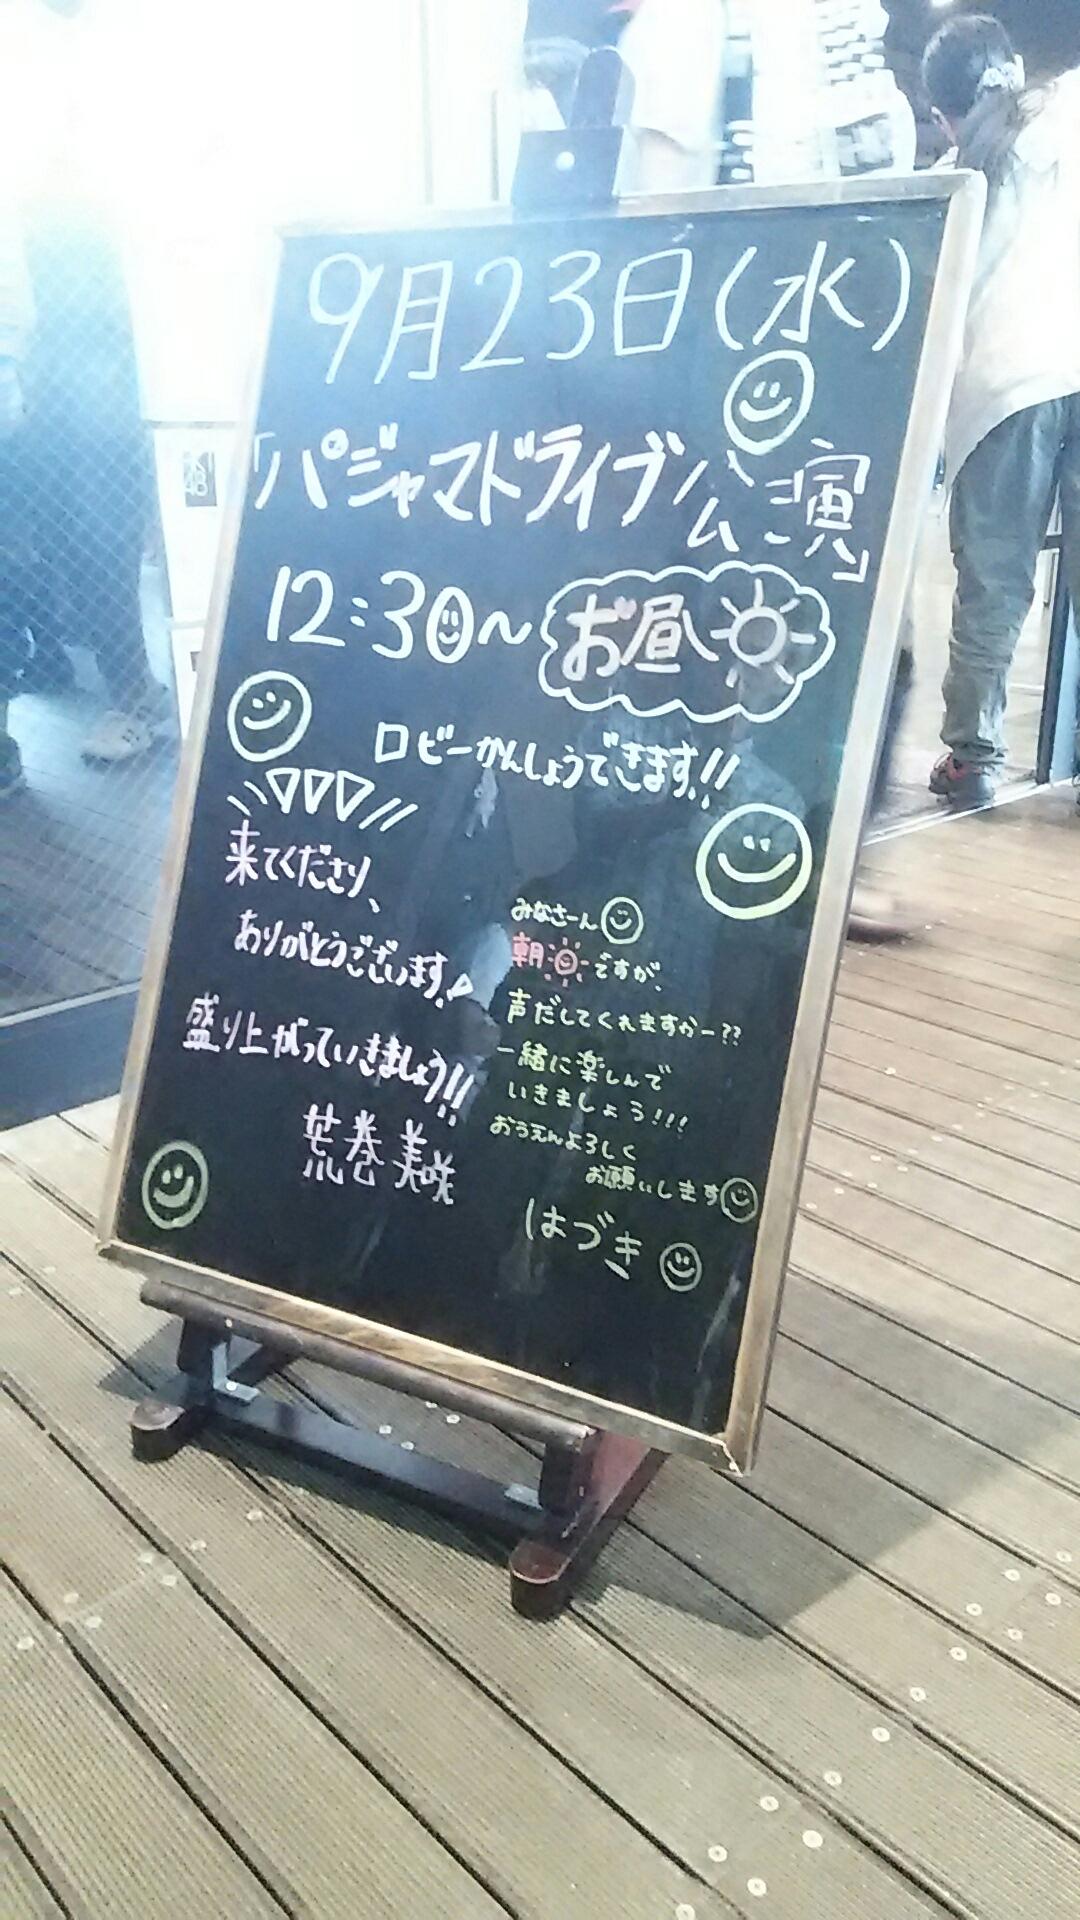 9月23日(水)
「パジャマドライブ公演」
12:30~ お昼
ロビーかんしょうできます!!
来てくださり、
ありがとうございます!
盛り上がっていきましょう!!
荒巻美咲
みなさーん
朝ですが、
声だしてくれますかー??
一緒に楽しんで
いきましょう!!!
おうえんよろしく
お願いします
はづき